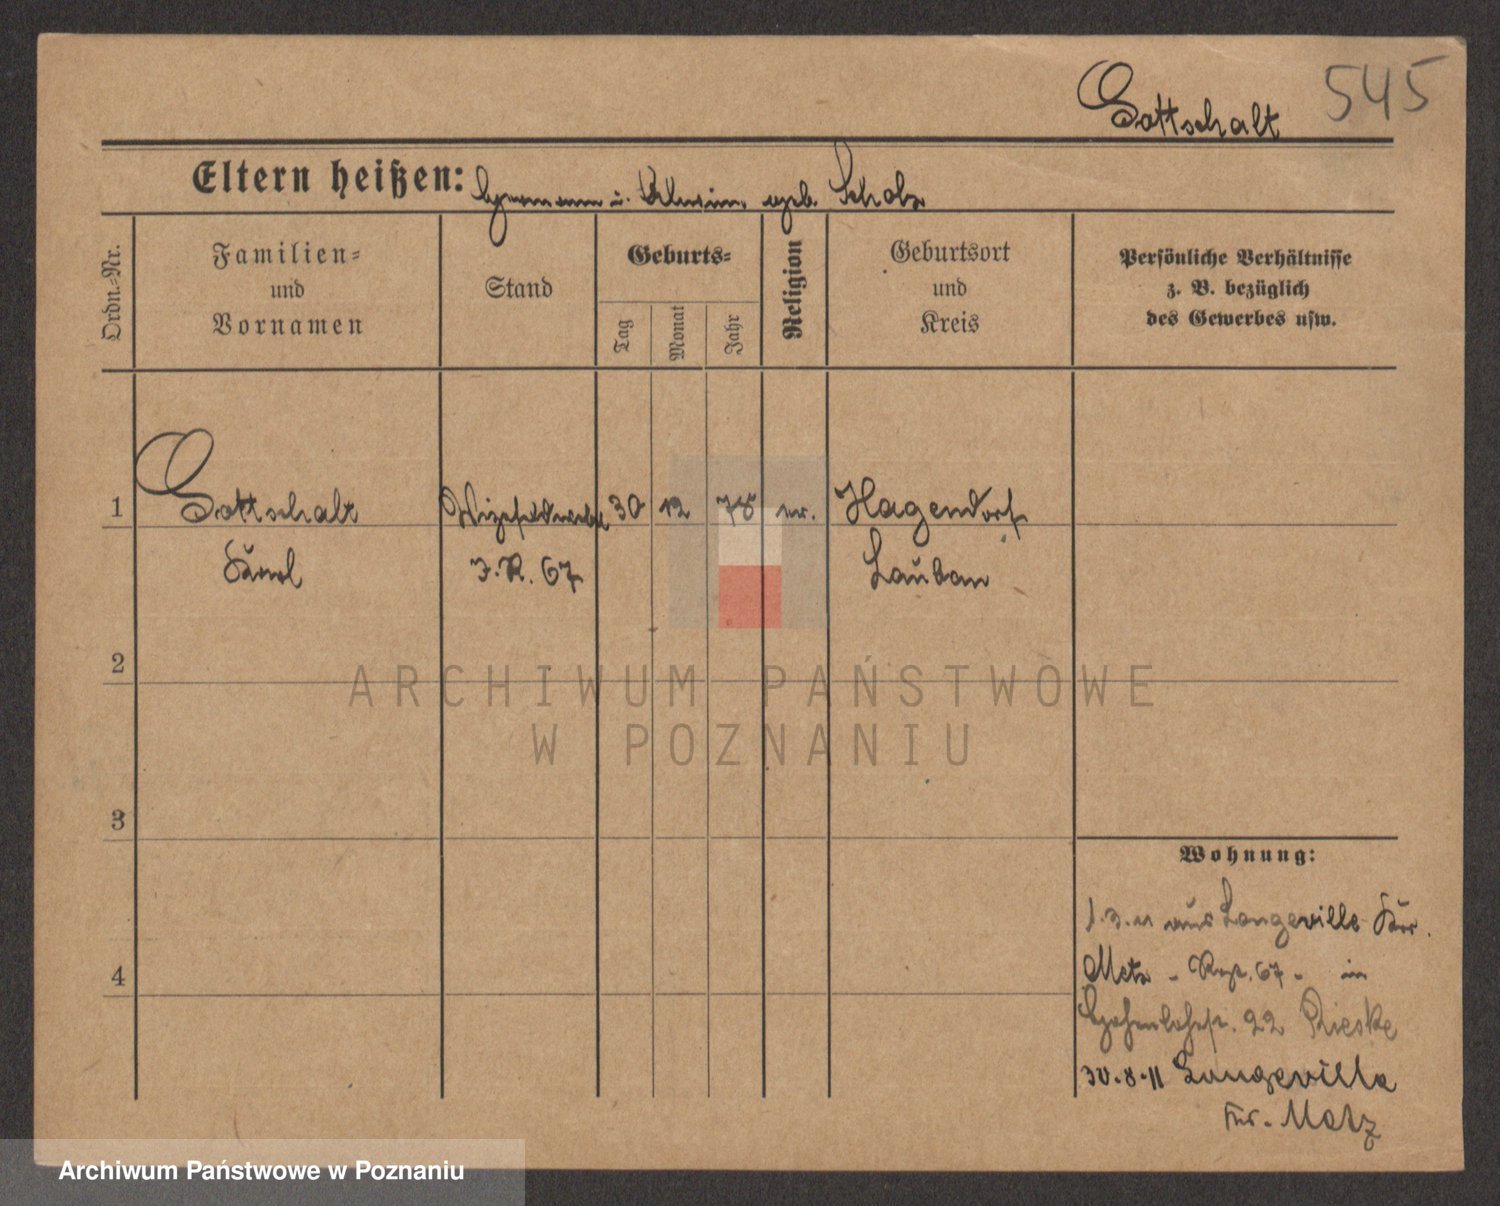 Gottschalt 545
Eltern heißen: Hermann u. geb. Scholz
Ordn.-Nr.
Familien-
und
Vornamen
Stand
Geburts-
Tag
Monat
Jahr
Religion
Geburtsort
und
Kreis
Persönliche Verhältnisse
z. B. bezüglich
des Gewerbes usw.
1 Gottschalt Vizefeldwebel 30 12 78 ev. Hagendorf
Karl J.R. 67 Lauban
2
3
4
Wohnung:
1.3.11 aus Longeville Kr.
Metz - Rgt. 67 - in
Hohenlohestr. 22 Rieske
30.8.11 Longeville
Kr. Metz
ARCHIWUM PAŃSTWOWE
W POZNANIU
Archiwum Państwowe w Poznaniu